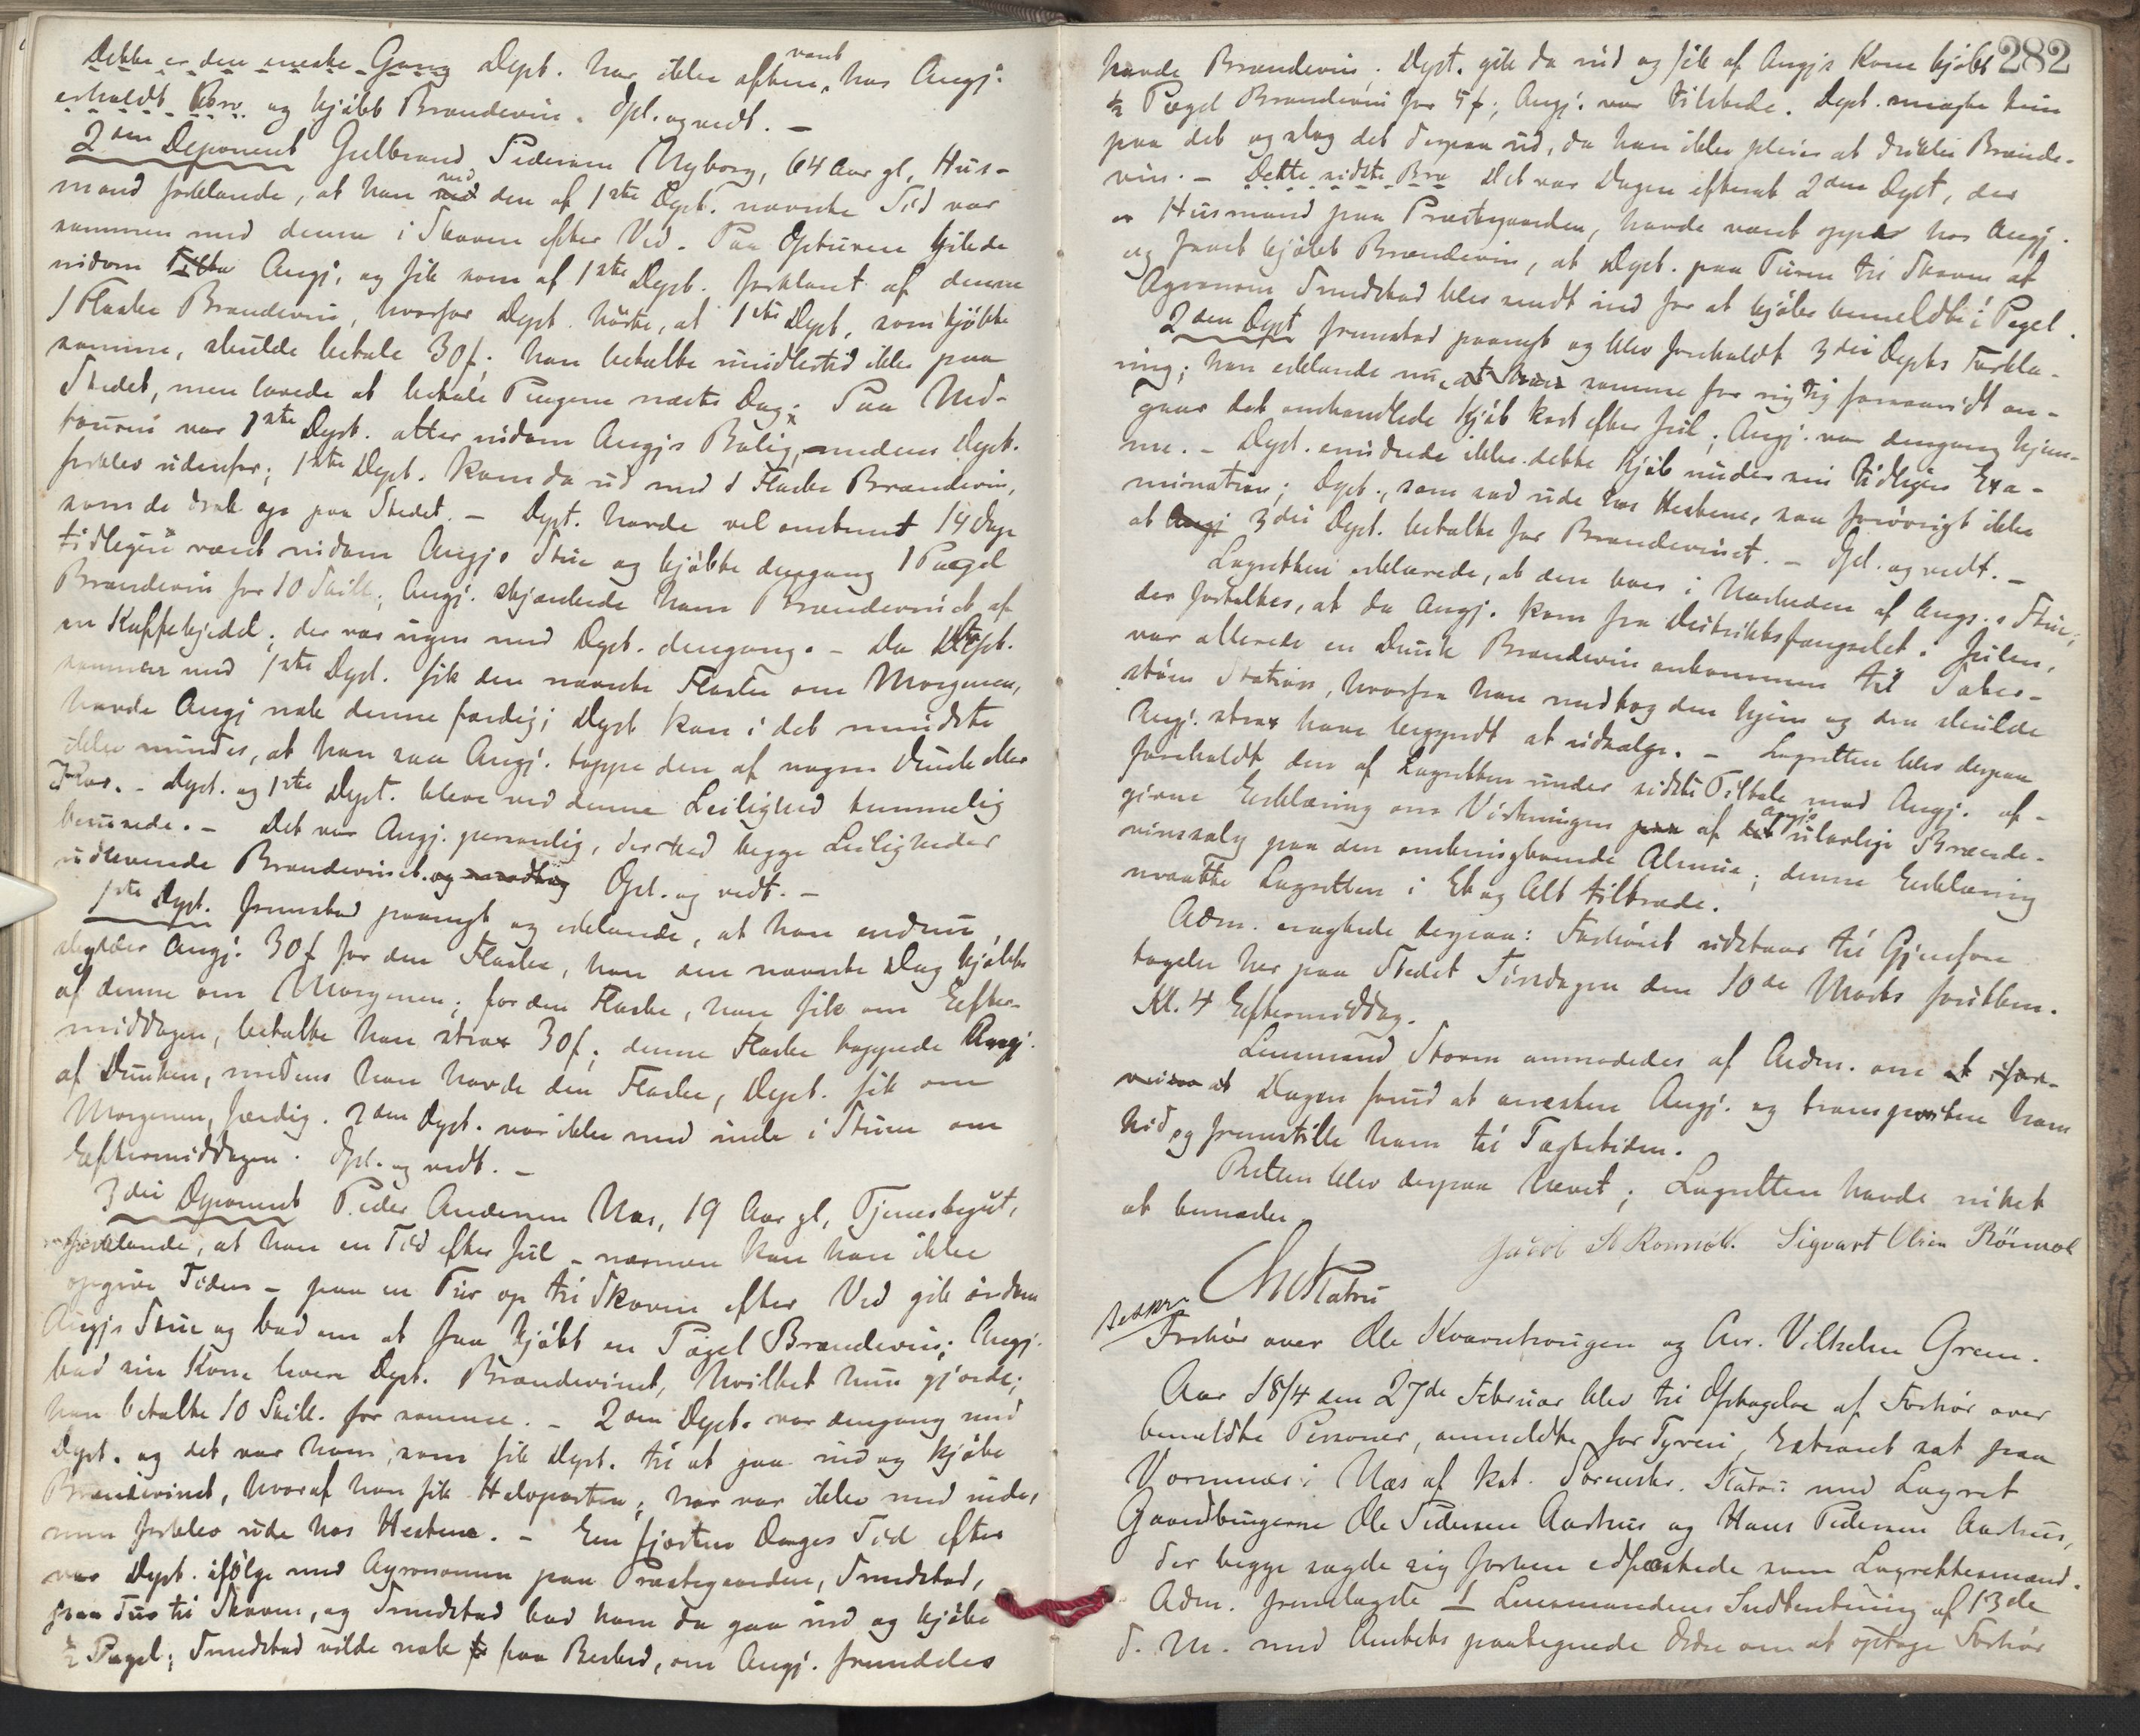 Dette er den eneste Gang Dept. har ikke oftere varet hos Angj.
erholdt Brv. og kjøbt Brændevin. Opl. og vedt. —
2den Deponent Gulbrand Pedersen Nyborg, 64 Aar gl, Hus-
mand forklarede, at han ved den af 1ste Dept. nævnte Tid var
sammen med denne i Skoven efter Ved. Paa Opturen hilede
indom Angj. og fik som af 1ste Dept. forklaret af denne
1 Flaske Brændevin, hvorfor Dept. hørte, at 1ste Dept, som kjøbte
samme, skulde betale 30 f; han betalte imidlertid ikke paa
Stedet, men lovede at betale Pengene næste Dag; Paa Ned-
touren var 1ste Dept. atter indom Angjs Bolig, medens Dept.
forblev udenfor; 1ste Dept. kom da ud med 1 Flaske Brændevin,
som de drak op paa Stedet. — Dept. havde vel omtrent 14 Dage
tidligere været indom Angjs Stue og kjøbte dengang 1 Pægel
Brændevin for 10 Skill.; Angj. skjænkede ham Brændevinet af
en Kaffekjedel; der var ingen med Dept. dengang. — Da Dept.
sammen med 1ste Dept. fik den nævnte Flaske om Morgenen,
havde Angj nok denne færdig; Dept kan i det mindste
ikke mindes, at han saa Angj. tappe den af nogen Dunk eller
Krus. — Dept. og 1ste Dept. bleve ved denne Leilighed temmelig
berusede. — Det var Angj. personlig, der ved begge Leiligheder
udleverede Brændevinet. og modtog Opl. og vedt. —
1ste Dept. fremstod paanyt og erklærede, at han endnu
skylder Angj. 30 f for den Flaske, han den nævnte Dag kjøbte
af denne om Morgenen; for den Flaske, han fik om Efter-
middagen, betalte han strax 30 f; denne Flaske tappede Angj.
af Dunken, medens han havde den Flaske, Dept. fik om
Morgenen, færdig. 2den Dept. var ikke med inde i Stuen om
Eftermiddagen. Opl. og vedt. —
3die Deponent Peder Andersen Næs, 19 Aar gl, Tjenestegut,
forklarede, at han en Tid efter Jul – nærmere kan han ikke
opgive Tiden – paa en Tur op til Skoven efter Ved gik indom
Angjs Stue og bad om at faa kjøbt en Pægel Brændevin; Angj.
bad sin Kone levere Dept. Brændevinet, hvilket hun gjorde;
han betalte 10 Skill. for samme. — 2den Dept. var dengang med
Dept. og det var ham, som fik Dept. til at gaa ind og kjøbe
Brændevinet, hvoraf han fik Halvparten; han var ikke med inde,
men forblev ude hos Hestene. — En fjorten Dages Tid efter
var Dept. ifølge med Agronomen paa Præstegaarden, Trudstad,
paa Tur til Skoven, og Trudstad bad ham da gaa ind og kjøbe
½ Pægel; Trudstad vilde nok faa Besked, om Angj. fremdeles
282
havde Brændevin. Dept. gik da ind og fik af Angjs Kone kjøbt
½ Pægel Brændevin for 5 f; Angj. var tilstede. Dept. smagte kun
paa det og slog det derpaa ud, da han ikke pleier at drikke Brænde-
vin. — Dette sidste Brv Det var Dagen efterat 2den Dept, der
er Husmand paa Præstegaarden, havde været oppe hos Angj.
og faaet kjøbt Brændevin, at Dept. paa Turen til Skoven af
Agronom Trudstad blev sendt ind for at kjøbe bemeldte ½ Pægel.
2den Dept fremstod paanyt og blev foreholdt 3die Depts Forkla-
ring; han erklærede nu, samme for rigtig forsaavidt an-
gaar det omhandlede Kjøb kort efter Jul; Angj. var dengang hjem-
me. — Dept. erindrede ikke dette Kjøb under sin tidligere Exa-
mination; Dept., som sad ude hos Hestene, saa forøvrigt ikke
at Angj 3die Dept. betalte for Brændevinet. — Opl. og vedt. —
Lagretten erklærede, at den boer i Nærheden af Angjs Stue;
der fortaltes, at da Angj. kom fra Distriktsfængselet i Julen,
var allerede en Dunk Brændevin ankommen til
Station, hvorfra han medtog den hjem og den skulde
Angj. strax have begyndt at udsælge. — Lagretten blev derpaa
foreholdt den af Lagretten under sidste Tiltale mod Angj. af-
givne Erklæring om Virkningen paa af det Angjs ulovlige Brænde-
vinssalg paa den omkringboende Almue; denne Erklæring
maatte Lagretten i Et og Alt tiltræde.
Adm. eragtede derpaa: Forhøret udstaar til Gjenfore-
tagelse her paa Stedet Tirsdagen den 10de Marts førstkom.
Kl. 4 Eftermiddag.
Lensmand Storm anmodedes af Adm. om at
at Dagen forud at arrestere Angj. og transportere ham
hid og fremstille ham til Tægtetiden.
Retten blev derpaa hævet; Lagretten havde intet
at bemærke.
Jacob Rønnol. Sigvart Olsen Rönnol
Forhør over Ole Kvarnhougen og Chr. Vilhelm Grem.
Aar 1874 den 27de Februar blev til Optagelse af Forhør over
bemeldte Personer, anmeldte for Tyveri, Extraret sat paa
Vormnæs i Næs af kst. Sorenskr. Statou med Lagret
Gaardbrugerne Ole Pedersen Aarhus og Hans Pedersen Aarhus,
der begge sagde sig forhen edfæstede som Lagrettesmænd.
Adm. fremlagde 1 Lensmandens Indberetning af 13de
d. M. med Amtets paategnede Ordre om at optage Forhør